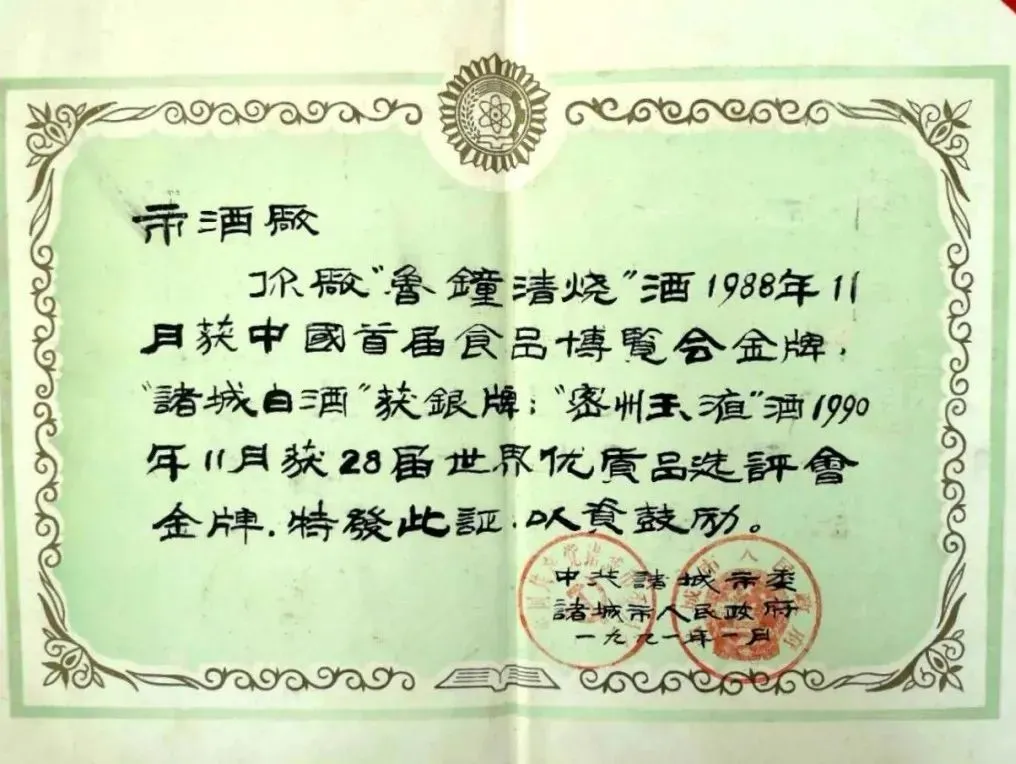 市酒厰
你厰“魯鐘清烧”酒1988年11
月获中國首届食品博覧会金牌，
“諸城白酒”获銀牌；“密州玉液”酒1990
年11月获28届世界优质品选評會
金牌．特發此証．以資鼓励。
中共諸城市委
諸城市人民政府
一九九一年一月